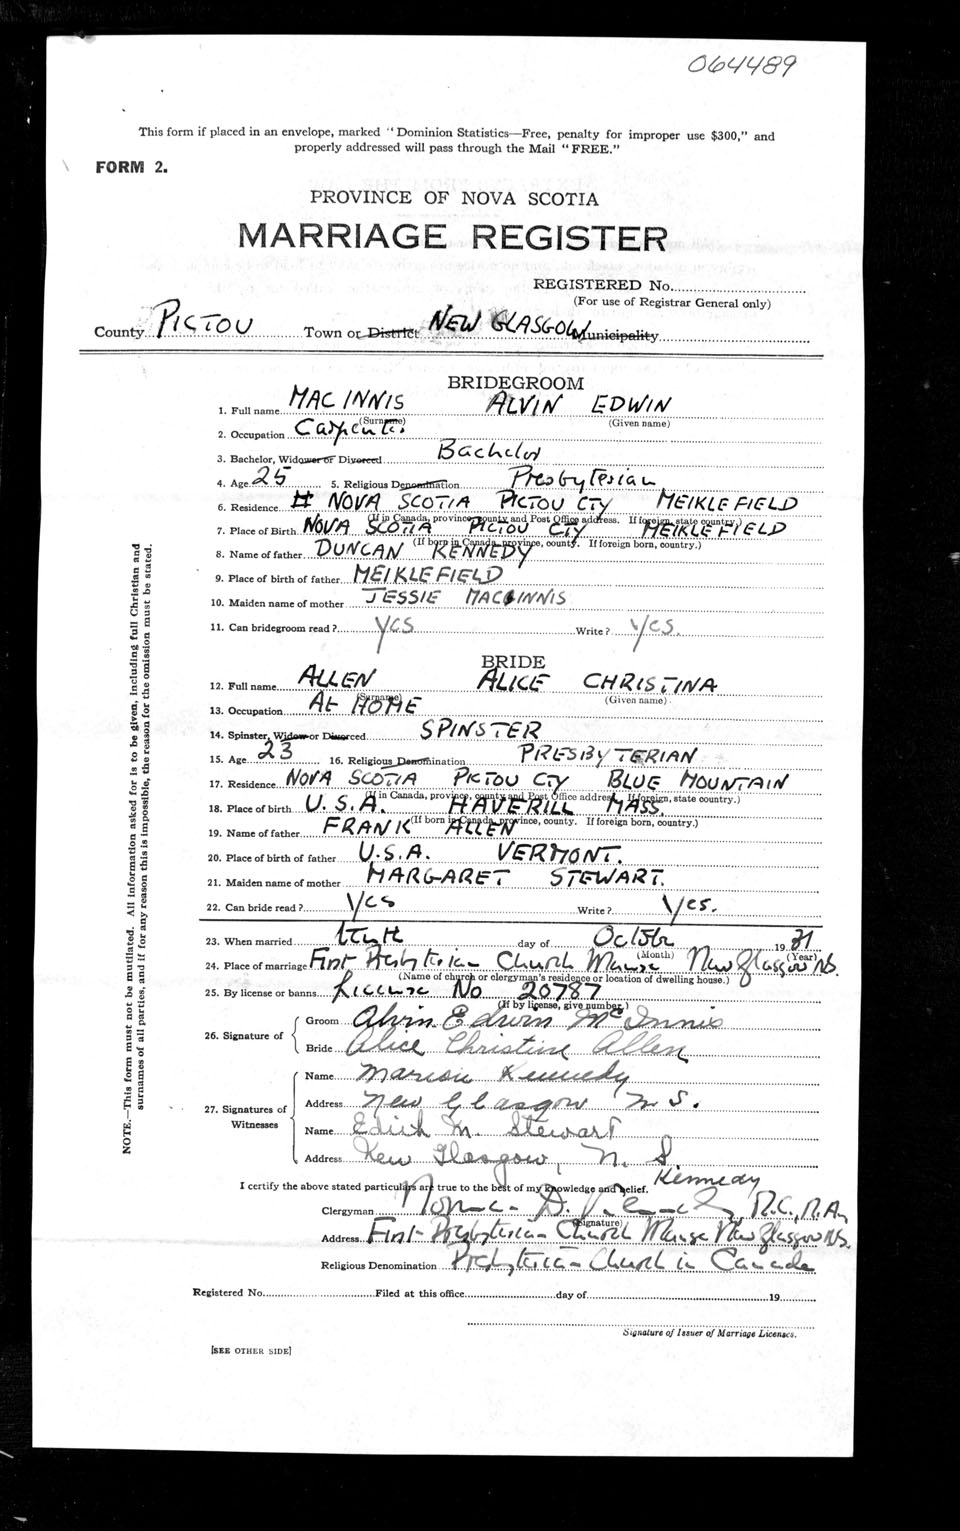 064489
This form if placed in an envelope, marked "Dominion Statistics—Free, penalty for improper use $300," and
properly addressed will pass through the Mail "FREE."
FORM 2.
PROVINCE OF NOVA SCOTIA
MARRIAGE REGISTER
REGISTERED No.
(For use of Registrar General only)
County PICTOU Town or District NEW GLASGOW Municipality
BRIDEGROOM
1. Full name MAC INNIS ALVIN EDWIN
(Surname) (Given name)
2. Occupation Carpenter
3. Bachelor, Widower or Divorced Bachelor
4. Age 25 5. Religious Denomination Presbyterian
6. Residence NOVA SCOTIA PICTOU CTY MEIKLEFIELD
(If in Canada, province, county and Post Office address. If foreign, state country.)
7. Place of Birth NOVA SCOTIA PICTOU CTY MEIKLEFIELD
(If born in Canada, province, county. If foreign born, country.)
8. Name of father DUNCAN KENNEDY
9. Place of birth of father MEIKLEFIELD
10. Maiden name of mother JESSIE MACINNIS
11. Can bridegroom read? Yes Write? Yes.
BRIDE
12. Full name ALLEN ALICE CHRISTINA
(Surname) (Given name)
13. Occupation At HOME
14. Spinster, Widow or Divorced SPINSTER
15. Age 23 16. Religious Denomination PRESBYTERIAN
17. Residence NOVA SCOTIA PICTOU CTY BLUE MOUNTAIN
(If in Canada, province, county and Post Office address. If foreign, state country.)
18. Place of birth U.S.A. HAVERILL MASS.
(If born in Canada, province, county. If foreign born, country.)
19. Name of father FRANK ALLEN
20. Place of birth of father U.S.A. VERMONT.
21. Maiden name of mother MARGARET STEWART.
22. Can bride read? Yes Write? Yes.
23. When married tenth day of October 1931
(Month) (Year)
24. Place of marriage First Presbyterian Church Manse New Glasgow NS.
(Name of church or clergyman's residence or location of dwelling house.)
25. By license or banns License No 20787
(If by license, give number.)
26. Signature of
Groom Alvin Edwin McInnis
Bride Alice Christine Allen
27. Signatures of Witnesses
Name Marion Kennedy
Address New Glasgow N.S.
Name Edith M. Stewart
Address New Glasgow, N. S.
Kennedy
I certify the above stated particulars are true to the best of my knowledge and belief.
Clergyman Norman D. Kennedy, M.C., M.A.,
(Signature)
Address First Presbyterian Church Manse New Glasgow NS.
Religious Denomination Presbyterian Church in Canada
Registered No. Filed at this office day of 19
Signature of Issuer of Marriage Licenses.
[SEE OTHER SIDE]
NOTE.—This form must not be mutilated. All information asked for is to be given, including full Christian and
surnames of all parties, and if for any reason this is impossible, the reason for the omission must be stated.